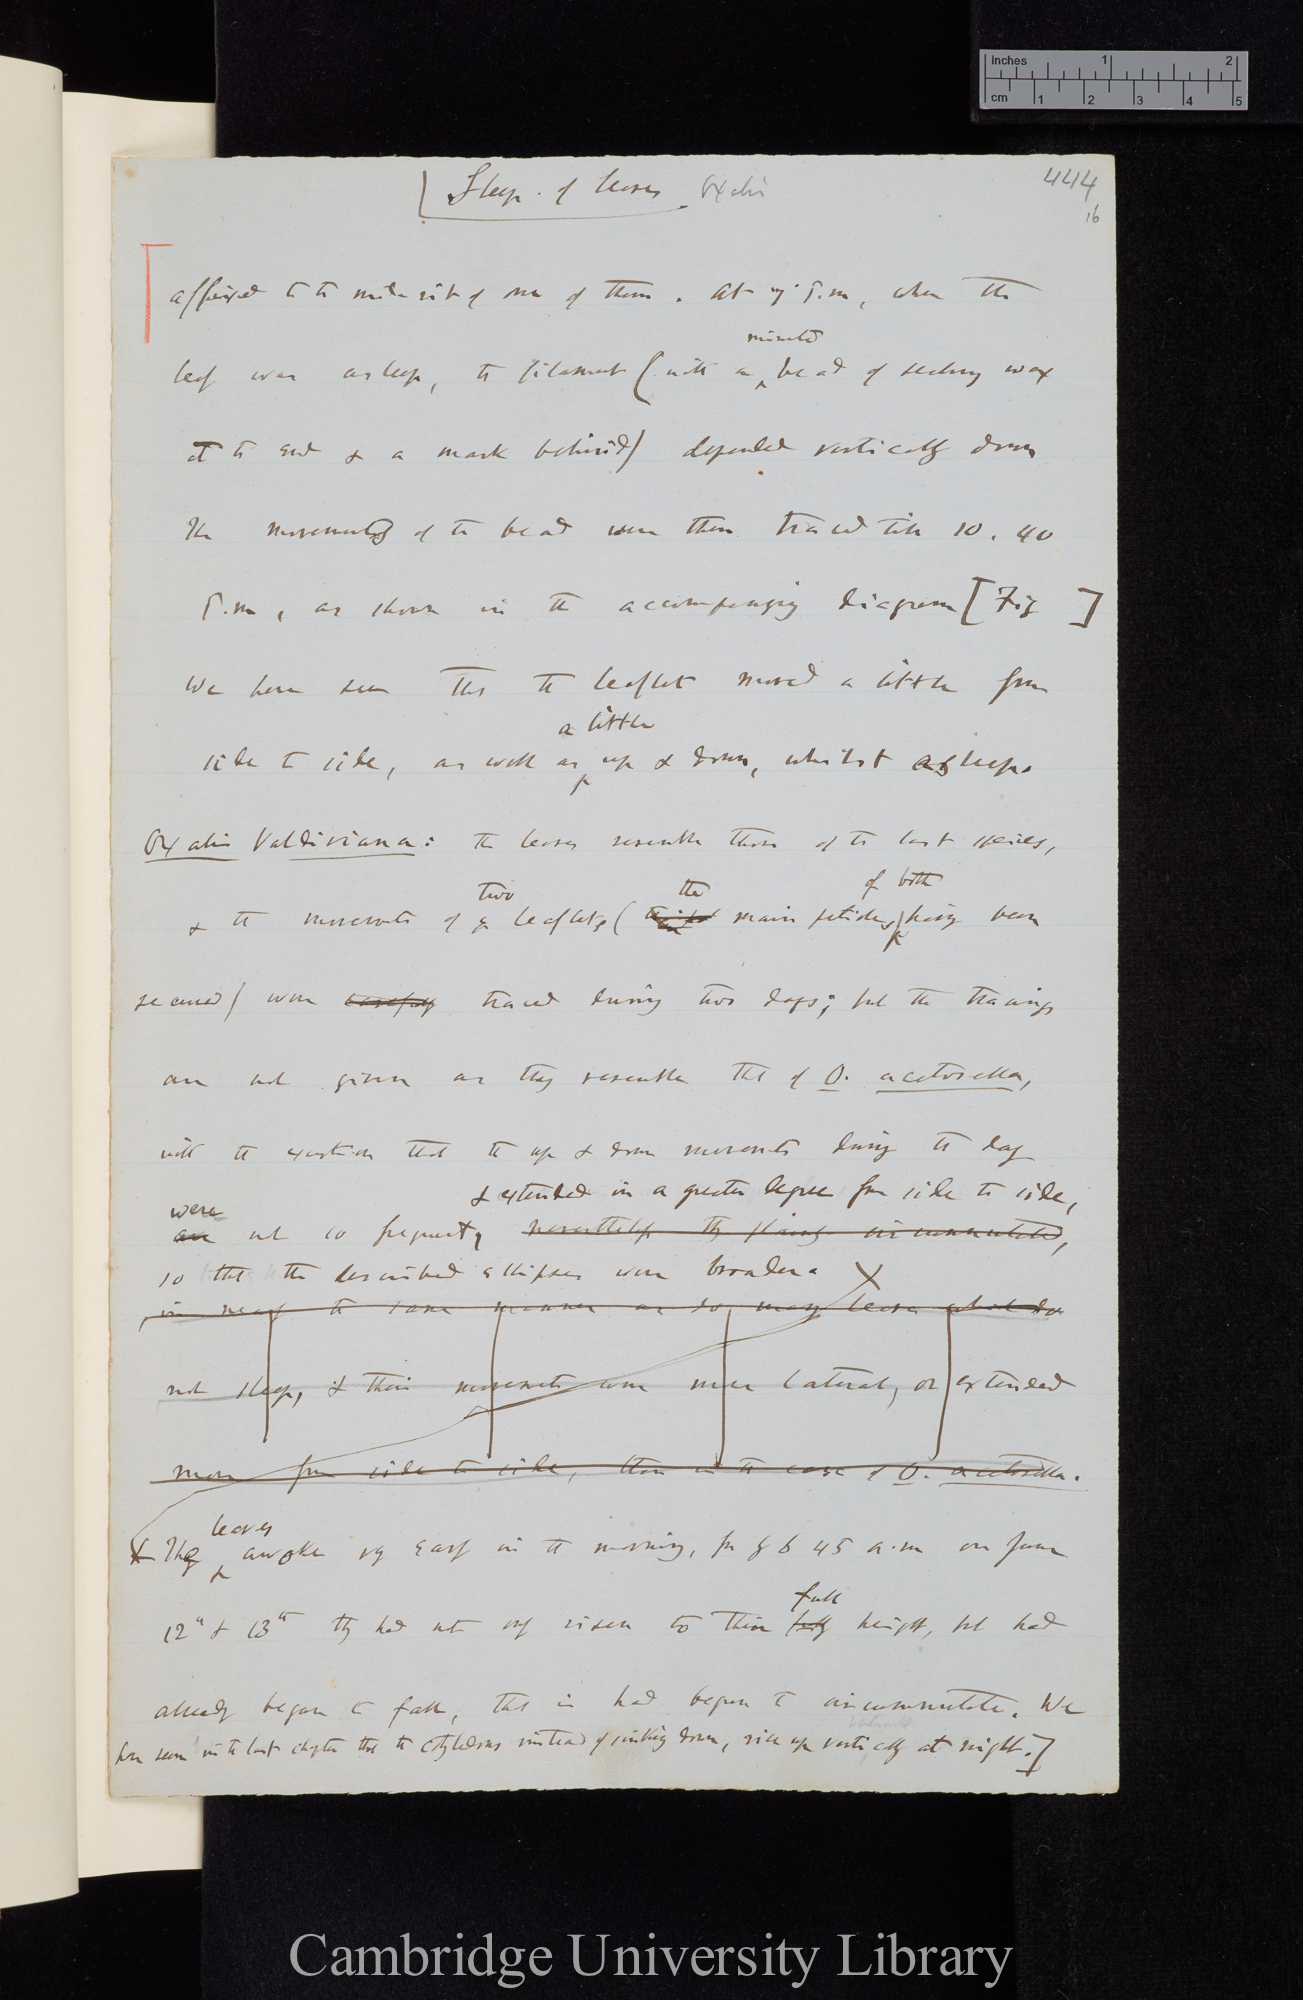 Inches 1 2
cm 1 2 3 4 5
Sleep of leaves Oxalis 444
16
affixed to the mid-rib of one of them. At P.m, when the
minute
leaf was asleep, the filament (with a bead of sealing wax
at the end & a mark behind) depended vertically down
The movements of the bead were then traced till 10.40
P.m, as shown in the accompanying diagram [Fig ]
We have seen that the leaflet moved a little from
a little
side to side, as well as up & down, whilst asleep.
Oxalis Valdiviana: the leaves resemble those of the last species,
two the of both
& the movements of a leaflets (main petioles) having been
secured) were carefully traced during two days; but the tracings
are not given as they resemble that of O. acetosella,
with the exception that the up & down movements during the day
& extended in a greater degree from side to side,
were
are not so frequent, nevertheless they plainly circumnutated,
so that the described ellipses were broader.
in nearly the same manner as do many leaves which do
not sleep, & their movements were more lateral, or extended
more from side to side, than in the case of O. acetosella.
leaves
They awoke very early in the morning, for by 6 45 a.m on June
full
12th & 13th they had not only risen to their fully height, but had
already begun to fall, that is had begun to circumnutate. We
have seen in the last chapter that the cotyledons instead of sinking down, rise up vertically at night.]
Cambridge University Library